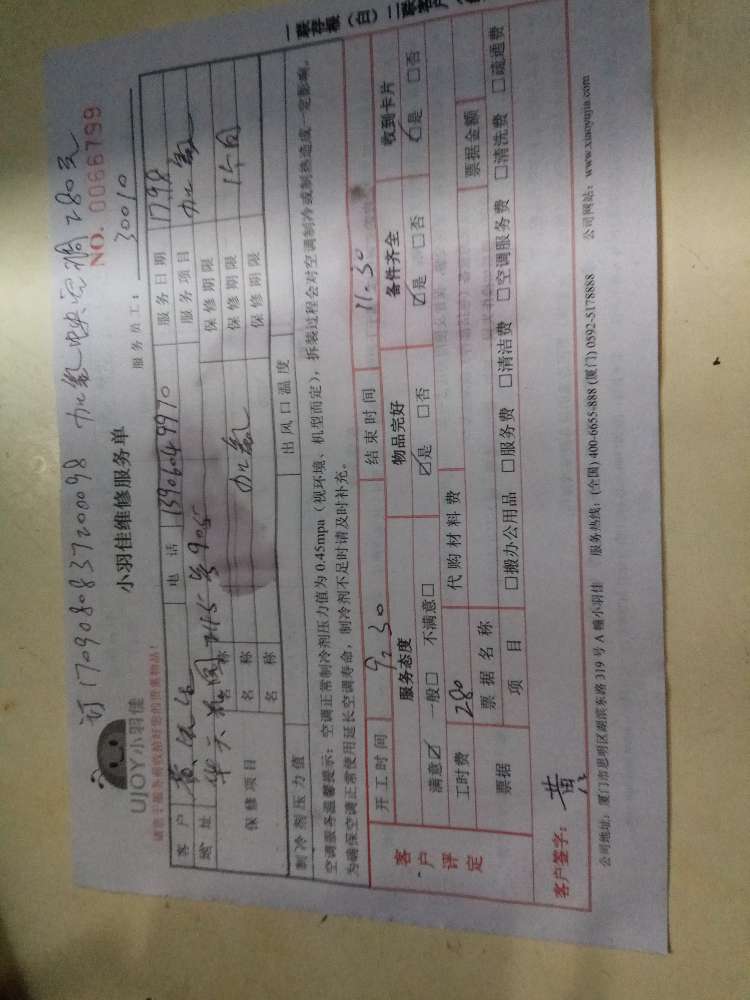 订 1709080837200098 加氨中央空调 280元
UJOY小羽佳
小羽佳维修服务单
NO. 0066799
服务员工： 30010
请您于服务前收拾好您的贵重物品！
客户 电话 13906049970 服务日期 17.9.8
地址 华天花园 215号905 服务项目 加氨
保修项目 名称 保修期限
名称 加氨 保修期限
名称 保修期限
制冷剂压力值 出风口温度
空调服务温馨提示：空调正常制冷剂压力值为 0.45mpa（视环境、机型而定），拆装过程会对空调制冷或制热造成一定影响。
为确保空调正常使用延长空调寿命，制冷剂不足时请及时补充。
开工时间 9:30 结束时间 11:30
客户评定 服务态度 物品完好 备件齐全 收到卡片
满意☑ 一般□ 不满意□ ☑是 □否 ☑是 □否 ☑是 □否
工时费 280 代购材料费
票据 票据名称 票据金额
项目 □搬办公用品 □服务费 □清洁费 □空调服务费 □清洗费 □疏通费
客户签字： 黄
公司地址：厦门市思明区湖滨东路 319 号 A 幢小羽佳 服务热线：(全国) 400-6655-888 (厦门) 0592-5178888 公司网站：www.xiaoyujia.com
一联存根（白）二联客户